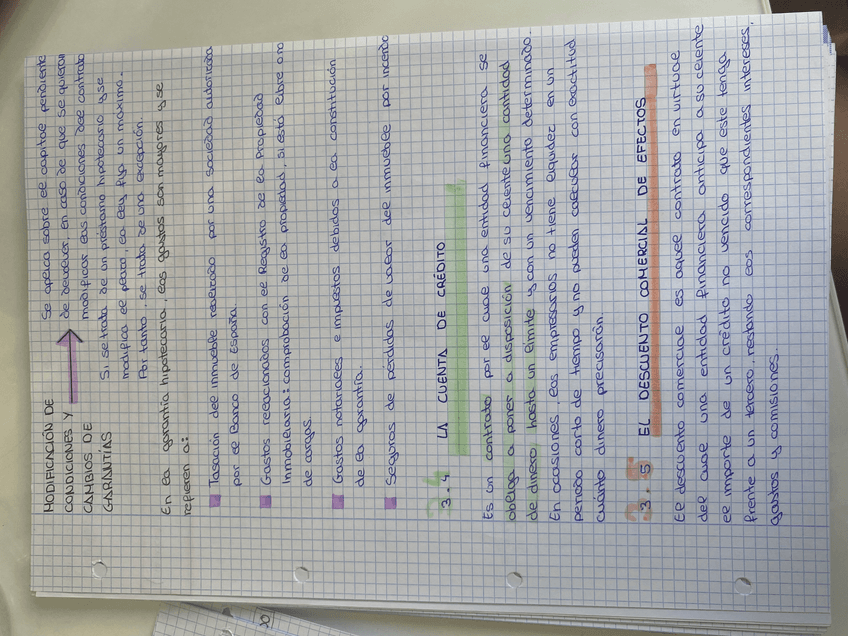 MODIFICACIÓN DE
CONDICIONES Y
CAMBIOS DE
GARANTÍAS
Se aplica sobre el capital pendiente
de devolver, en caso de que se quieran
modificar las condiciones del contrato
Si se trata de un préstamo hipotecario y se
modifica el plazo, la ley fija un máximo.
Por tanto, se trata de una excepción.
En la garantía hipotecaria, los gastos son mayores y se
refieren a:
Tasación del inmueble realizado por una sociedad autorizada
por el Banco de España.
Gastos relacionados con el Registro de la Propiedad
Inmobiliaria: comprobación de la propiedad, si está libre o no
de cargas.
Gastos notariales e impuestos debidos a la constitución
de la garantía.
Seguros de pérdidas de valor del inmueble por incendio
3.4 LA CUENTA DE CRÉDITO
Es un contrato por el cual una entidad financiera se
obliga a poner a disposición de su cliente una cantidad
de dinero, hasta un límite y con un vencimiento determinado.
En ocasiones, los empresarios no tiene liquidez en un
periodo corto de tiempo y no pueden adecuar con exactitud
cuánto dinero precisarán.
3.5 EL DESCUENTO COMERCIAL DE EFECTOS
El descuento comercial es aquel contrato en virtud
del cual una entidad financiera anticipa a su cliente
el importe de un crédito no vencido que este tenga
frente a un tercero, restando los correspondientes intereses,
gastos y comisiones.
20